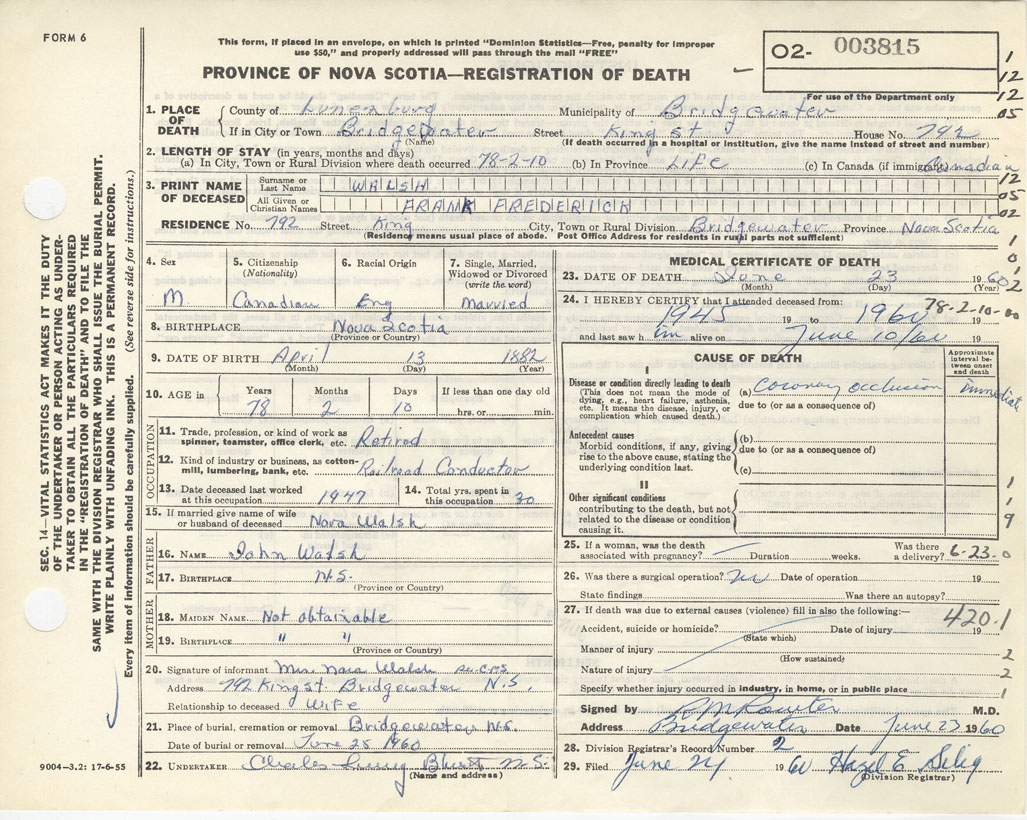 FORM 6
This form, if placed in an envelope, on which is printed "Dominion Statistics—Free, penalty for improper
use $50," and properly addressed will pass through the mail "FREE"
PROVINCE OF NOVA SCOTIA—REGISTRATION OF DEATH
O2- 003815
For use of the Department only
1
12
12
05
1. PLACE OF DEATH
County of Lunenburg Municipality of Bridgewater
If in City or Town Bridgewater Street King st House No. 792
(Name) (If death occurred in a hospital or Institution, give the name instead of street and number)
2. LENGTH OF STAY (in years, months and days)
(a) In City, Town or Rural Division where death occurred 78-2-10 (b) In Province LIFE (c) In Canada (if immigrant) Canadian
3. PRINT NAME OF DECEASED
Surname or Last Name WALSH
All Given or Christian Names FRANK FREDERICK
12
05
02
RESIDENCE No. 792 Street King City, Town or Rural Division Bridgewater Province Nova Scotia
(Residency means usual place of abode. Post Office Address for residents in rural parts not sufficient)
4. Sex M
5. Citizenship (Nationality) Canadian
6. Racial Origin Eng
7. Single, Married, Widowed or Divorced (write the word) Married
8. BIRTHPLACE Nova Scotia
(Province or Country)
9. DATE OF BIRTH April 13 1882
(Month) (Day) (Year)
10. AGE in Years Months Days If less than one day old
78 2 10 hrs. or min.
OCCUPATION
11. Trade, profession, or kind of work as spinner, teamster, office clerk, etc. Retired
12. Kind of industry or business, as cotton-mill, lumbering, bank, etc. Railroad Conductor
13. Date deceased last worked at this occupation 1947
14. Total yrs. spent in this occupation 30
15. If married give name of wife or husband of deceased Nova Walsh
FATHER
16. NAME John Walsh
17. BIRTHPLACE N.S.
(Province or Country)
MOTHER
18. MAIDEN NAME Not obtainable
19. BIRTHPLACE " "
(Province or Country)
20. Signature of informant Mrs. Nova Walsh
Address 792 King st. Bridgewater N.S.
Relationship to deceased Wife
21. Place of burial, cremation or removal Bridgewater N.S.
Date of burial or removal June 25 1960
22. UNDERTAKER Charles N.S.
(Name and address)
MEDICAL CERTIFICATE OF DEATH
23. DATE OF DEATH June 23 1960
(Month) (Day) (Year)
1
0
1
2
24. I HEREBY CERTIFY that I attended deceased from: 78-2-10-00
1945 19 to 1960 19
and last saw h im alive on June 10/60 19
CAUSE OF DEATH
Approximate interval between onset and death
I
Disease or condition directly leading to death
(This does not mean the mode of dying, e.g., heart failure, asthenia, etc. It means the disease, injury, or complication which caused death.)
(a) Coronary occlusion Immediate
due to (or as a consequence of)
Antecedent causes
Morbid conditions, if any, giving rise to the above cause, stating the underlying condition last.
(b)
due to (or as a consequence of)
(c)
II
Other significant conditions
contributing to the death, but not related to the disease or condition causing it.
1
1
9
25. If a woman, was the death associated with pregnancy? Duration weeks. Was there a delivery? 6-23-0
26. Was there a surgical operation? no Date of operation 19
State findings Was there an autopsy?
27. If death was due to external causes (violence) fill in also the following:—
420.1
Accident, suicide or homicide? Date of injury 19
(State which)
Manner of injury 2
(How sustained)
Nature of injury 2
Specify whether injury occurred in industry, in home, or in public place 1
Signed by M.D.
Address Bridgewater Date June 23 1960
28. Division Registrar's Record Number 2
29. Filed June 24 1960 Hazel E
(Division Registrar)
SEC. 14—VITAL STATISTICS ACT MAKES IT THE DUTY
OF THE UNDERTAKER OR PERSON ACTING AS UNDER-
TAKER TO OBTAIN ALL THE PARTICULARS REQUIRED
IN THE "REGISTRATION OF DEATH" AND TO FILE THE
SAME WITH THE DIVISION REGISTRAR WHO SHALL ISSUE THE BURIAL PERMIT.
WRITE PLAINLY WITH UNFADING INK. THIS IS A PERMANENT RECORD.
Every item of information should be carefully supplied. (See reverse side for instructions.)
9004—3.2: 17-6-55